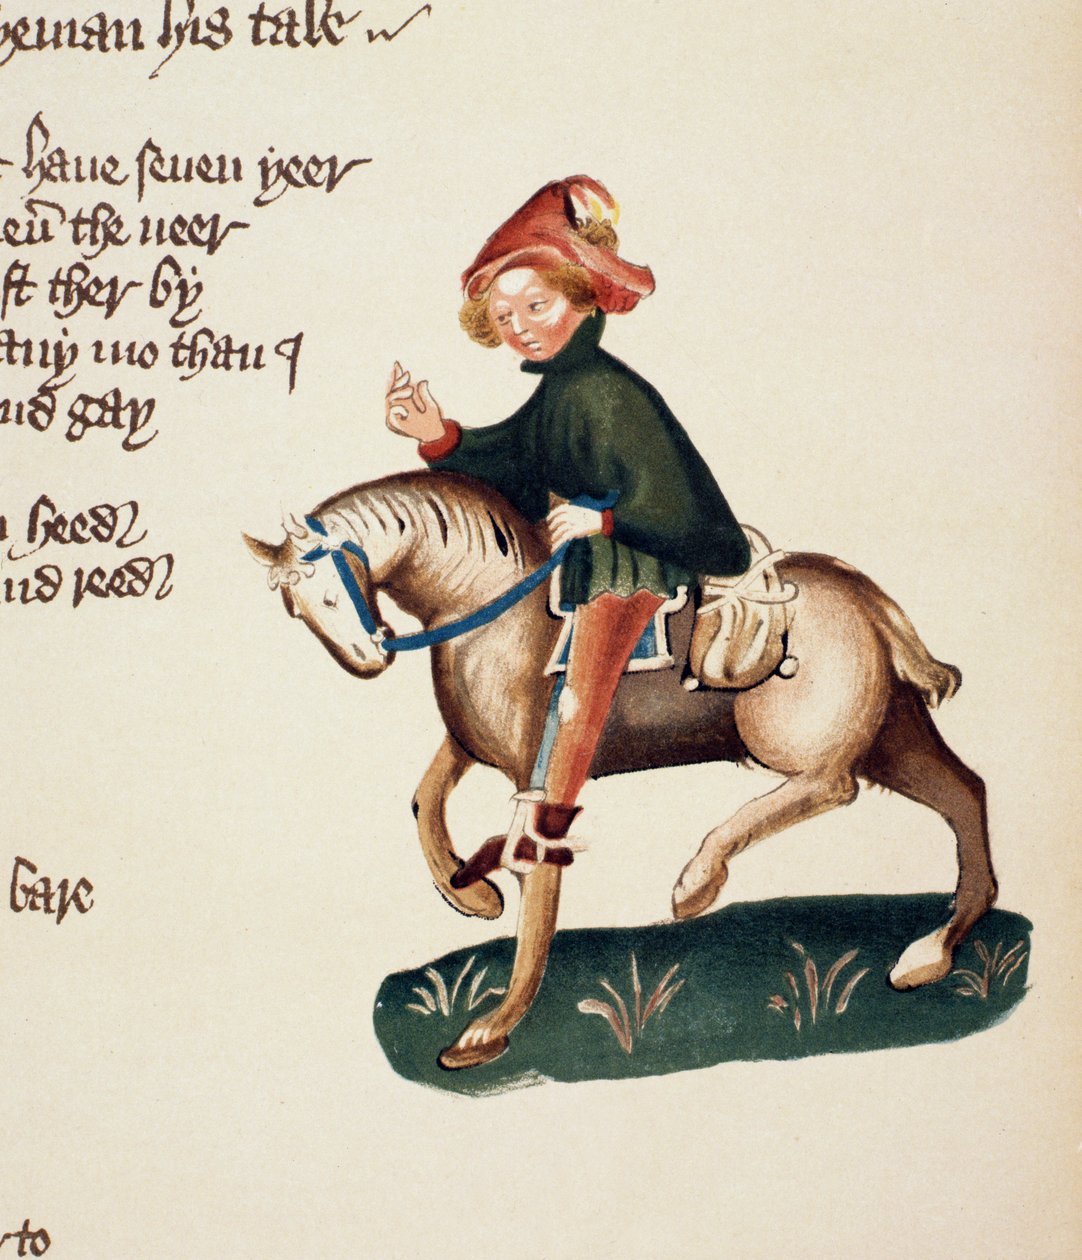 his tale
haue seuen yeer
the neer
ther by
many mo than I
and gay
heed
and reed
bare
to